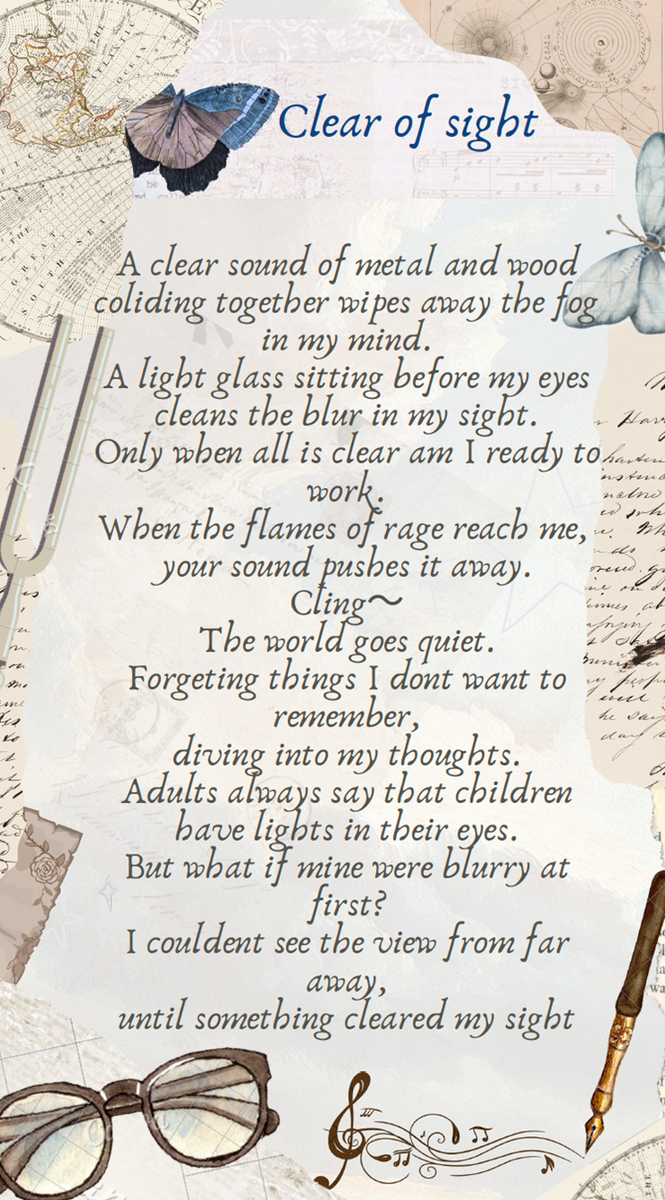 Clear of sight
A clear sound of metal and wood
coliding together wipes away the fog
in my mind.
A light glass sitting before my eyes
cleans the blur in my sight.
Only when all is clear am I ready to
work.
When the flames of rage reach me,
your sound pushes it away.
Cling~
The world goes quiet.
Forgeting things I dont want to
remember,
diving into my thoughts.
Adults always say that children
have lights in their eyes.
But what if mine were blurry at
first?
I couldent see the view from far
away,
until something cleared my sight